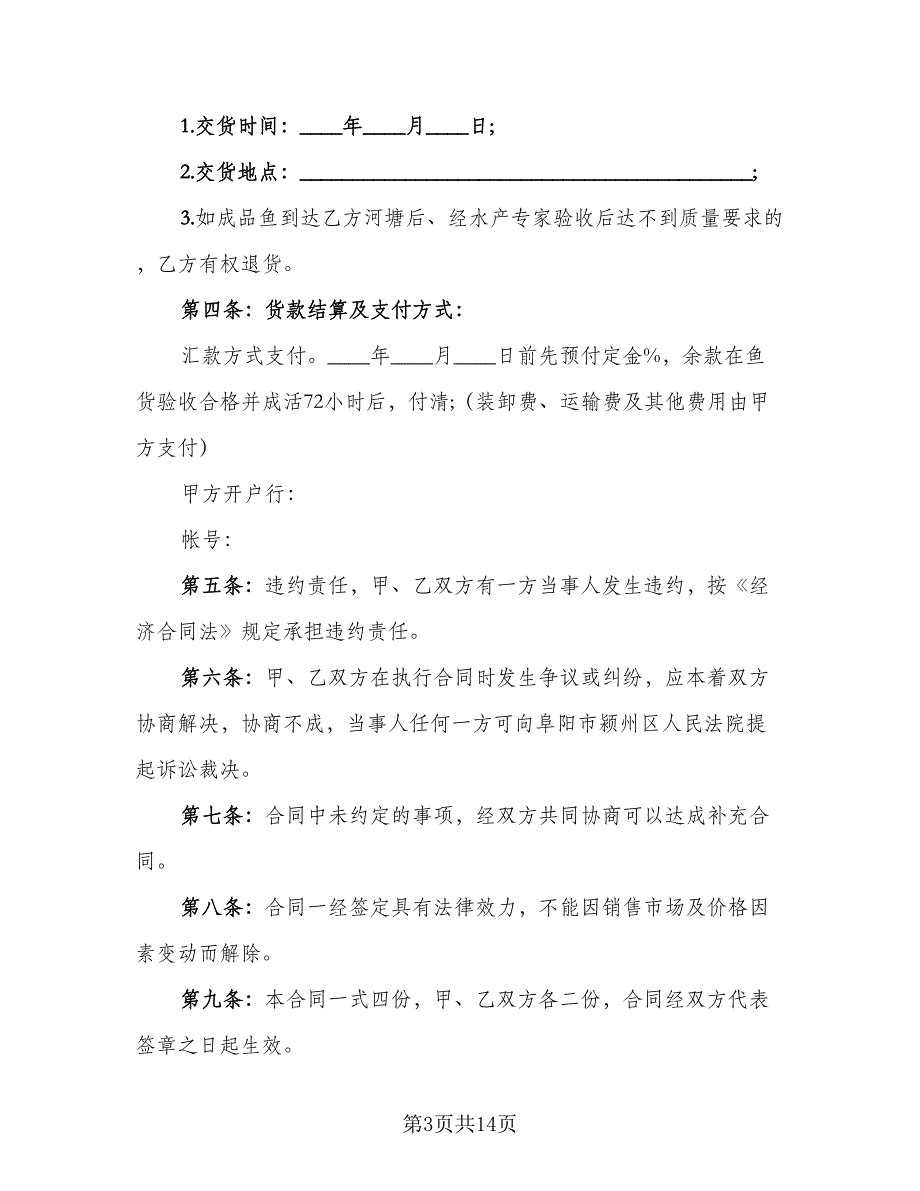 1.交货时间：____年____月____日；
2.交货地点：___________________________________________；
3.如成品鱼到达乙方河塘后、经水产专家验收后达不到质量要求的
，乙方有权退货。
第四条：货款结算及支付方式：
汇款方式支付。____年____月____日前先预付定金%，余款在鱼
货验收合格并成活72小时后，付清；（装卸费、运输费及其他费用由甲
方支付）
甲方开户行：
帐号：
第五条：违约责任，甲、乙双方有一方当事人发生违约，按《经
济合同法》规定承担违约责任。
第六条：甲、乙双方在执行合同时发生争议或纠纷，应本着双方
协商解决，协商不成，当事人任何一方可向阜阳市颍州区人民法院提
起诉讼裁决。
第七条：合同中未约定的事项，经双方共同协商可以达成补充合
同。
第八条：合同一经签定具有法律效力，不能因销售市场及价格因
素变动而解除。
第九条：本合同一式四份，甲、乙双方各二份，合同经双方代表
签章之日起生效。
第3页共14页